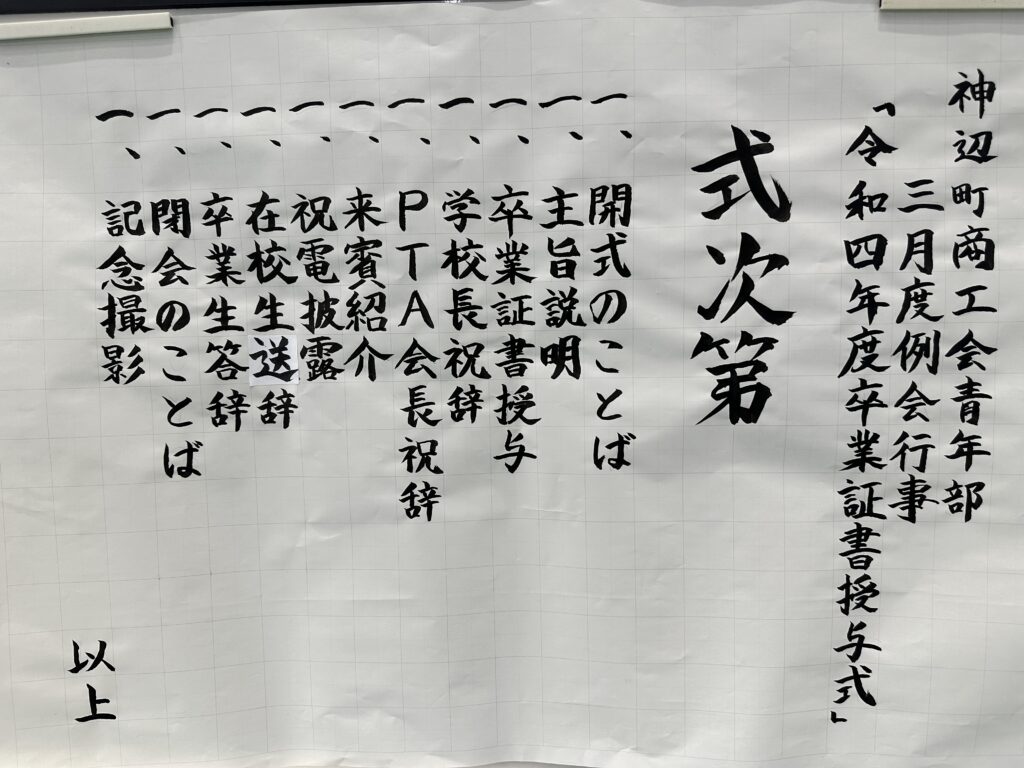 神辺町商工会青年部
三月度例会行事
「令和四年度卒業証書授与式」
式次第
一、開式のことば
一、主旨説明
一、卒業証書授与
一、学校長祝辞
一、PTA会長祝辞
一、来賓紹介
一、祝電披露
一、在校生送辞
一、卒業生答辞
一、閉会のことば
一、記念撮影
以上